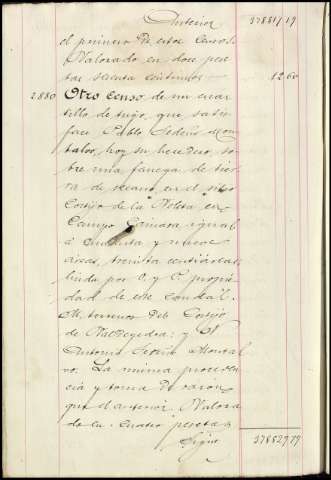 Anterior 37851/19
el primero de estos Censos.
Valorado en doce pese
tas sesenta centimos 12 60
2.880 Otro censo de un cuar
tillo de trigo, que satis
face Pablo Sedeño Mon
talvo, hoy su heredero, so
bre una fanega de tier
ra de secano, en el sitio
Cortijo de la Meleta, en
Campo Cámara igual
á cincuenta y nueve
áreas, treinta centiáreas;
linda por O. y P. propie
dad de este caudal;
M. terrenos del Cortijo
de Valdepedra; y N.
Antonio Sedeño Montal
vo. La misma proceden
cia y toma de razon
que el anterior. Valora
do en cuatro pesetas
Sigue 37852919